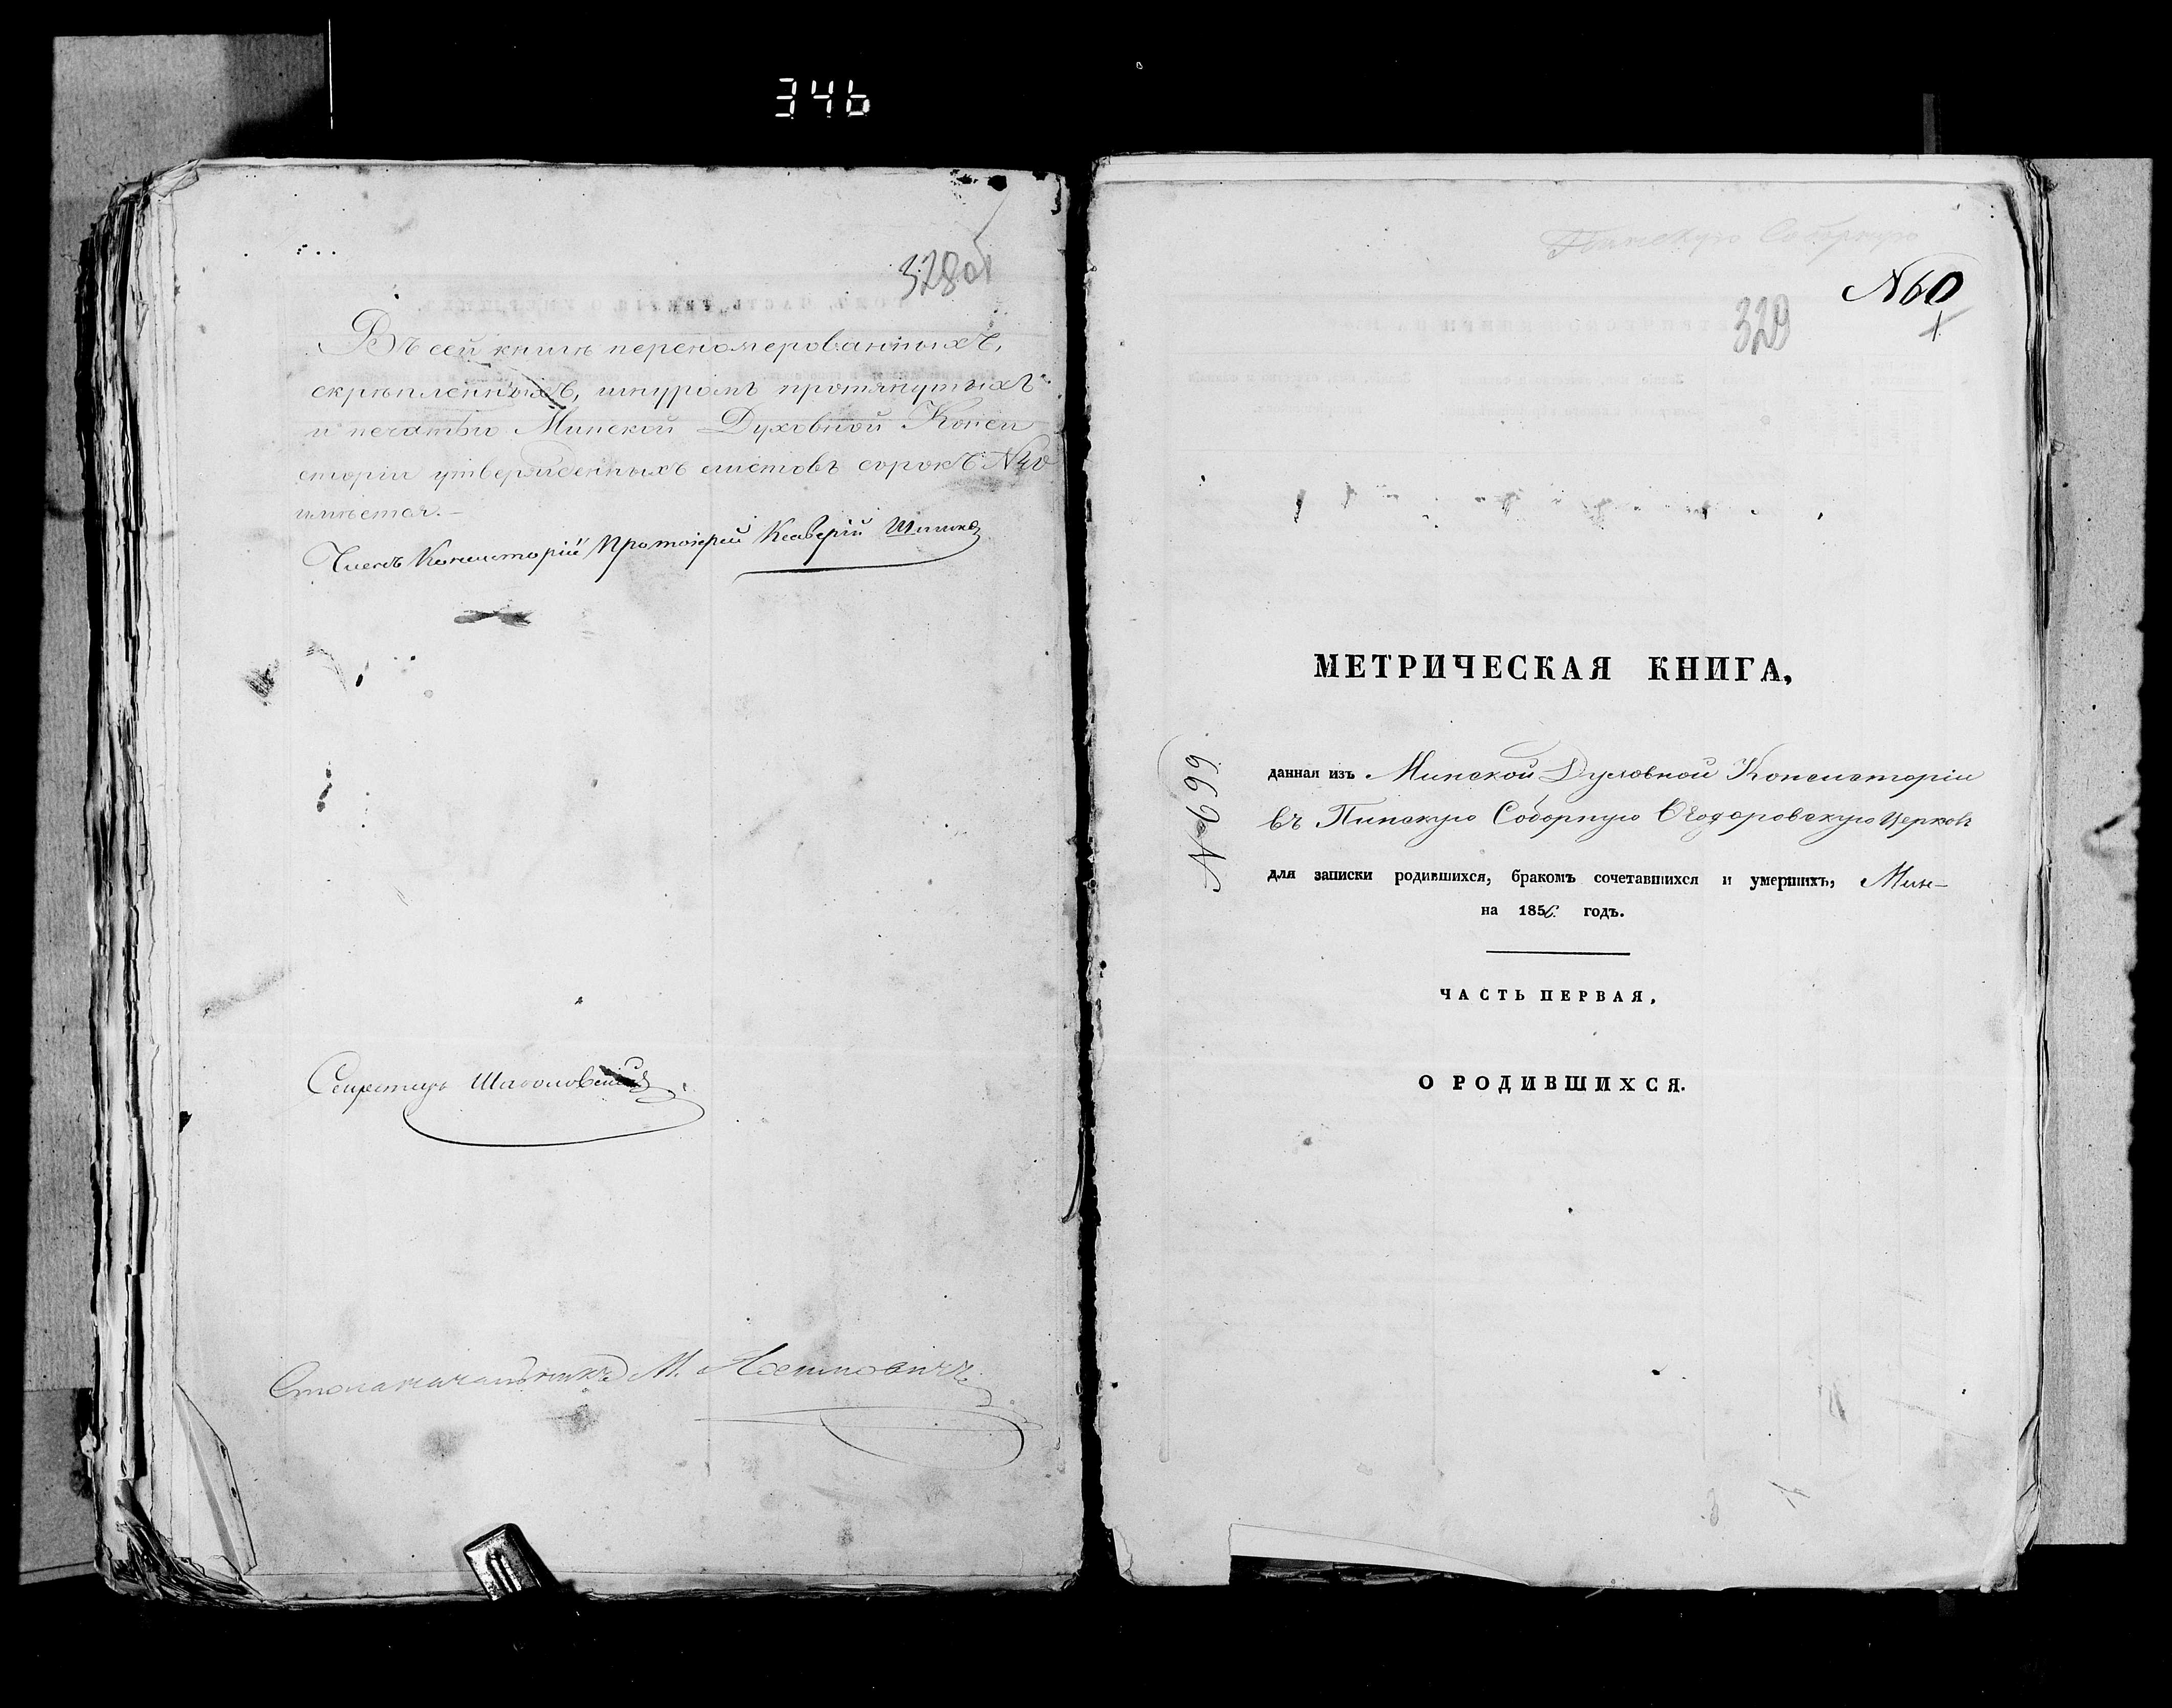 346
328об
Въ сей книгѣ перепомерованныхъ,
скрѣпленныхъ, шнуромъ протянутыхъ
и печатью Минской Духовной Конси
сторіи утвержденныхъ листовъ сорокъ №40
имѣется.—
Членъ Консисторіи Протоіерей Ксаверій
Секретарь
Столоначальникъ М.
Пинскую Соборную
№60
329
МЕТРИЧЕСКАЯ КНИГА,
данная изъ Минской Духовной Консисторіи
въ Пинскую Соборную Ѳеодоровскую Церковь
для записки родившихся, бракомъ сочетавшихся и умершихъ, Мин—
на 1856. годъ.
№699
ЧАСТЬ ПЕРВАЯ,
О РОДИВШИХСЯ.